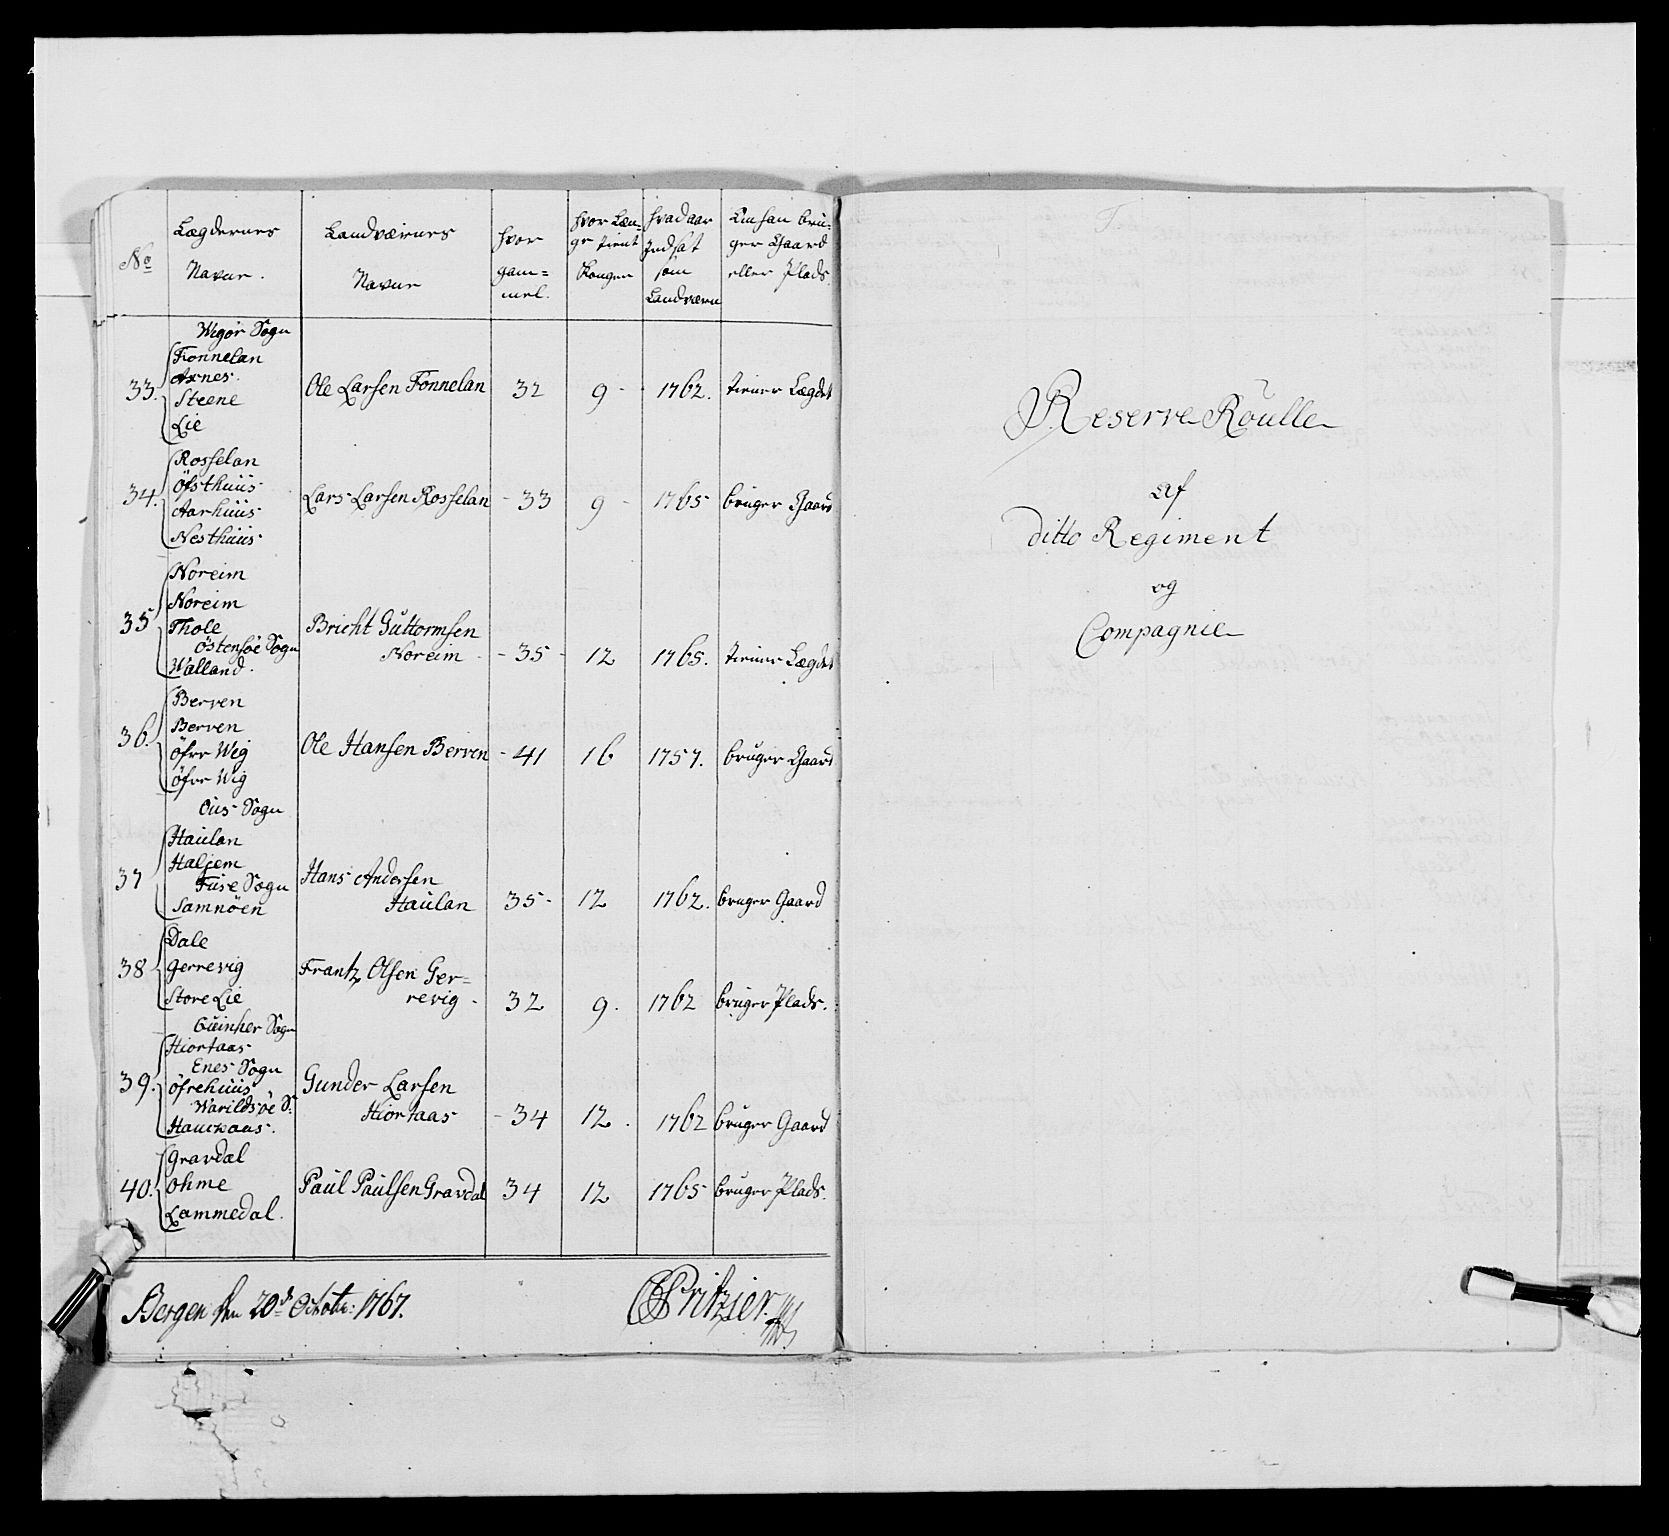 No
Lægdernes Navne.
Landværnes Navne
hvor gam= mel.
hvor Læn= ge tient Kongen
hvad aar Indsat som Landværn
Om han bru= ger Gaard eller Plads.
Wigør Sogn
33. Fonnelan
Axnes.
Steene
Lie
Ole Larsen Fonnelan 32 9 - 1762. tiener Lægdet
34. Rosselan
Öfsthuus
Aarhuus
Nesthuus
Lars Larsen Rosselan - 33 9 - 1765 bruger Gaard
35 Noreim
Noreim
Thole
Östensöe Sogn
Walland.
Bricht Guttormsen
Noreim - 35 - 12 1765. tiener Lægdet
36. Berven
Berven
öfre Wig
öfre Wig
Ole Hansen Berven - 41 16 1757. bruger Gaard
Ous Sogn
37 Haulan
Haljem
Fuse Sogn
Samnöen
Hans Andersen
Haulan 35 - 12 1762. bruger Gaard
38 Dale
Gerrevig
Store Lie
Frantz Olsen Ger=
revig - 32 9. 1762 bruger Plads.
Guinher Sogn
39. Hiortaas
Enes Sogn
öfrehuus
Warildsöe S.
Hauckaas.
Gunder Larsen
Hiortaas - 34 12. 1762 bruger Gaard
40. Gravdal
Ohme
Lammedal.
Paul Paulsen Gravdal 34 12 1765 bruger Plads.
Bergen den 20de Octobr: 1767.
Pritzier
Reserve Roulle
Af
ditto Regiment
og
Compagnie